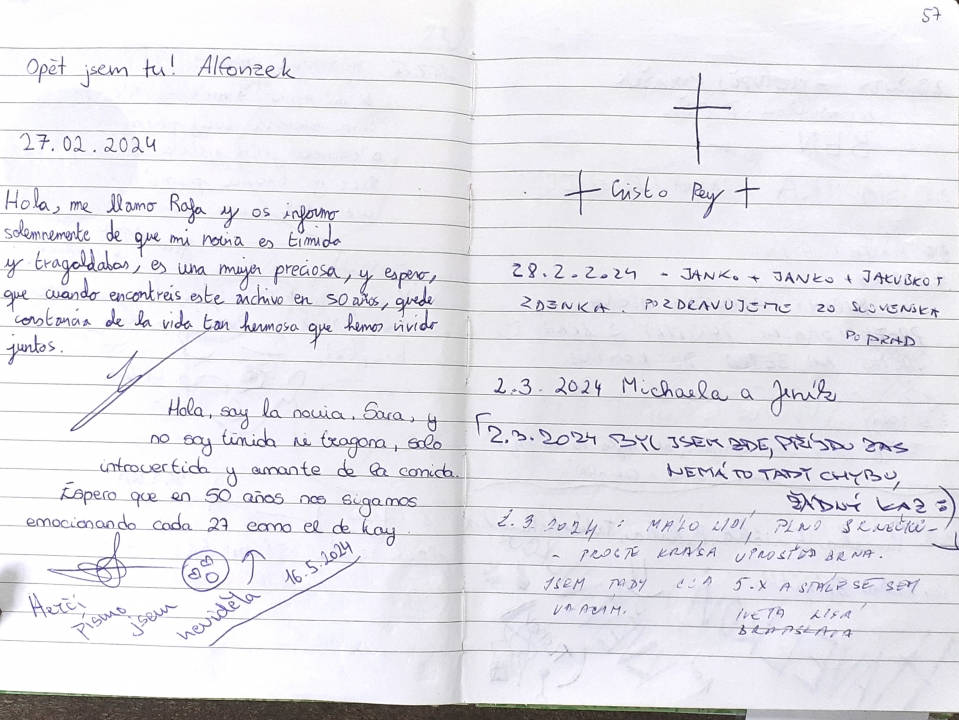 Opět jsem tu! Alfonzek
27.02.2024
Hola, me llamo Rafa y os informo
solemnemente de que mi novia es timida
y tragaldabas, es una mujer preciosa, y espero,
que cuando encontreis este archivo en 50 años, quede
constancia de la vida tan hermosa que hemos vivido
juntos.
Hola, soy la novia, Sara, y
no soy timida ni tragona, solo
introvertida y amante de la comida.
Espero que en 50 años nos sigamos
emocionando cada 27 como el de hoy.
Herčí
písmo
jsem
neviděla
16.5.2024
57
Cristo Rey
28.2.2024 - JANKO + JANKO + JAKUBKO +
ZDENKA. POZDRAVUJEME ZO SLOVENSKA
POPRAD
2.3. 2024 Michaela a Jeník
2.3.2024 BYL JSEM ZDE, PŘIJDU ZAS
NEMÁ TO TADY CHYBU,
ŽÁDNÝ KAZ :)
2.3.2024: MÁLO LIDÍ, PLNO SRNEČKŮ -
- PROSTĚ KRÁSA UPROSTŘED BRNA.
JSEM TADY CCA 5.X A STÁLE SE SEM
VRACÍM.
IVETA